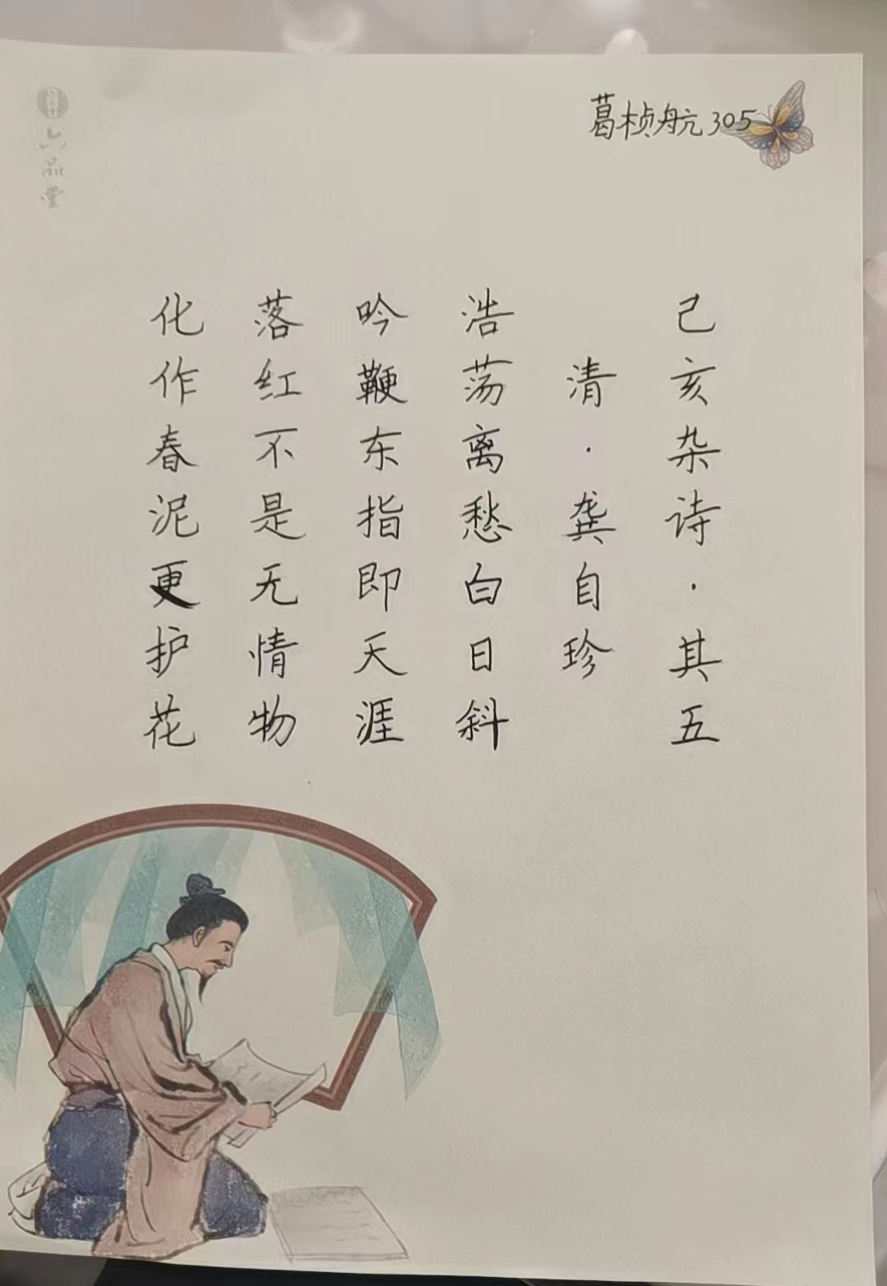 葛桢航 305
己亥杂诗·其五
清·龚自珍
浩荡离愁白日斜
吟鞭东指即天涯
落红不是无情物
化作春泥更护花
六品堂